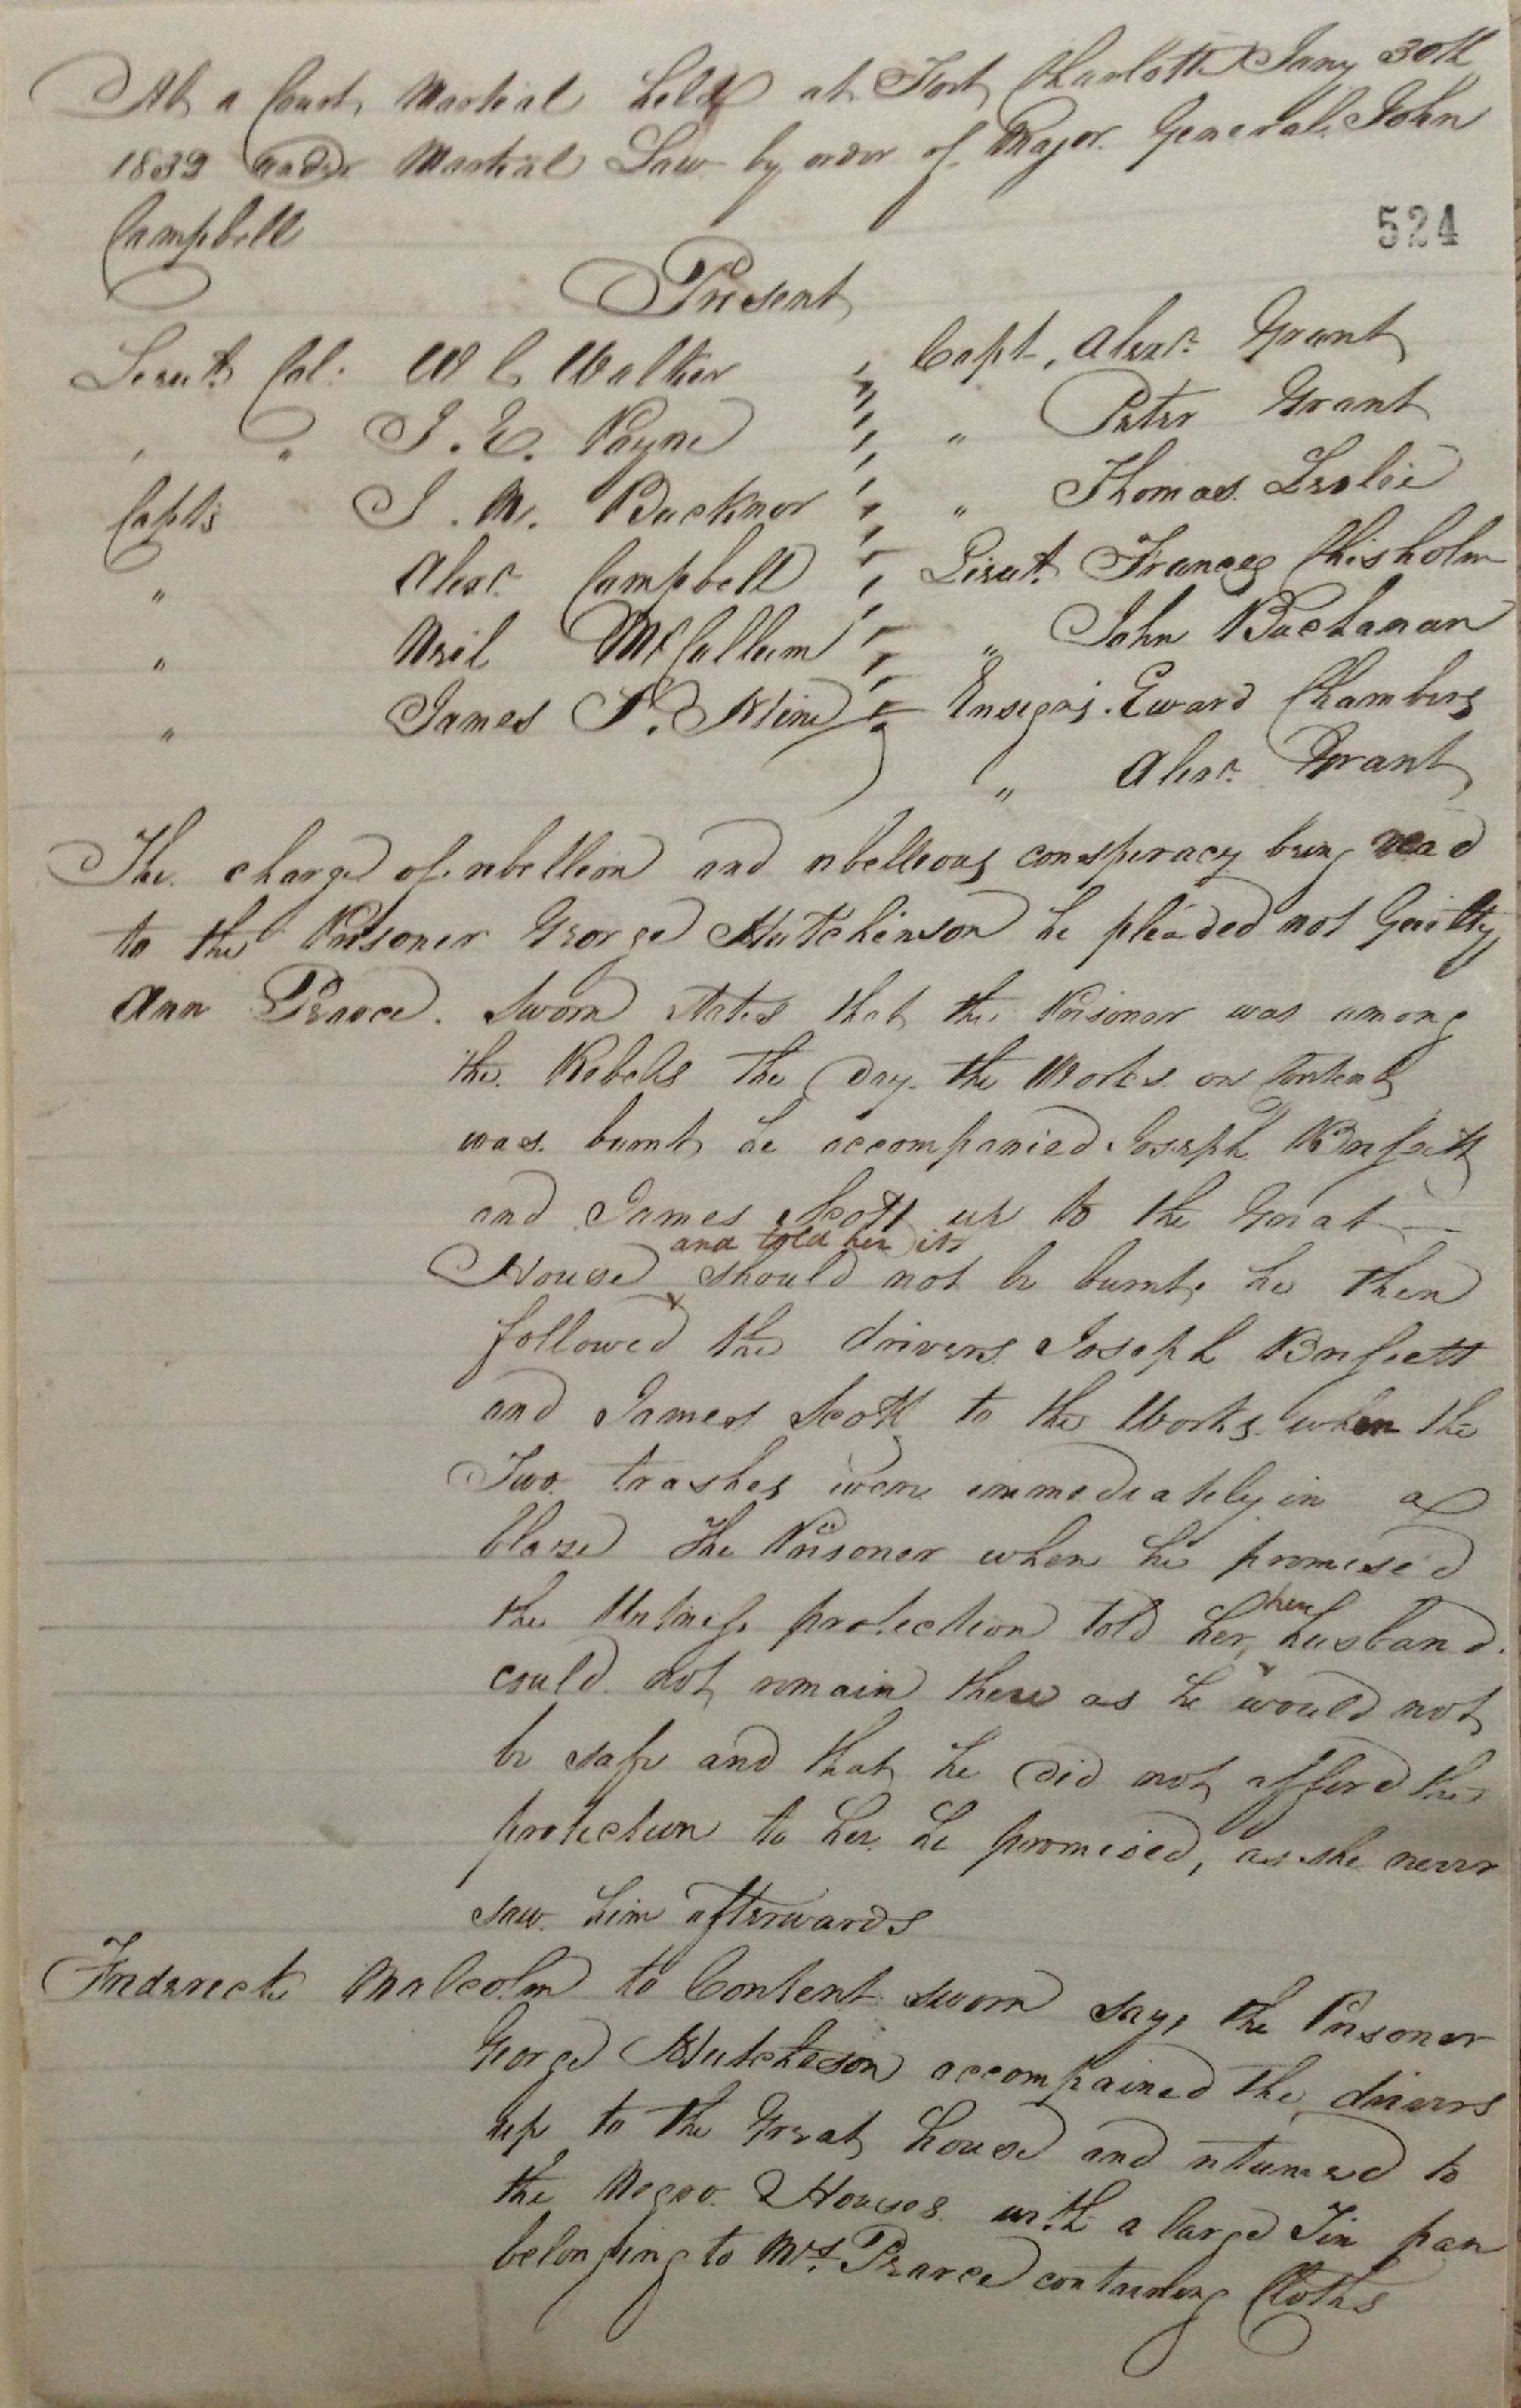 At a Court Martial held at Fort Charlotte Jany 30th
1832 under Martial Law by order of Major General John
Campbell
524
Present
Lieut. Col: W C Walker , Capt, Alexr. Grant
, „ J. E. Payne „ Peter Grant
Capts J. W. Bucknor „ Thomas Leslie
„ Alexr. Campbell Lieut. Frances Chisholm
„ Neil McCallum „ John Buchanan
„ James P. Hine Ensigns. Eward Chambers
„ Alexr. Grant
The charge of rebellion and rebellious conspiracy being read
to the Prisoner George Hutchinson he pleaded not Guilty
Ann Pearce. Sworn states that the Prisoner was among
the Rebels the day the Works on Content
was burnt he accompanied Joseph Brissett
and James Scott up to the Great
and told her it
House should not be burnt, he then
followed the drivers Joseph Brissett
and James Scott to the Works when the
Two trashes were immediately in a
blaze The Prisoner when he promised
the Witness protection told her her husband
could not remain there as he would not
be safe and that he did not afford the
protection to her he promised, as she never
saw him afterwards
Frederick Malcolm to Content sworn says the Prisoner
George Hutcheson accompained the drivers
up to the Great House and returned to
the Negro Houses with a large Tin pan
belonging to Mrs. Pearce containing Cloths